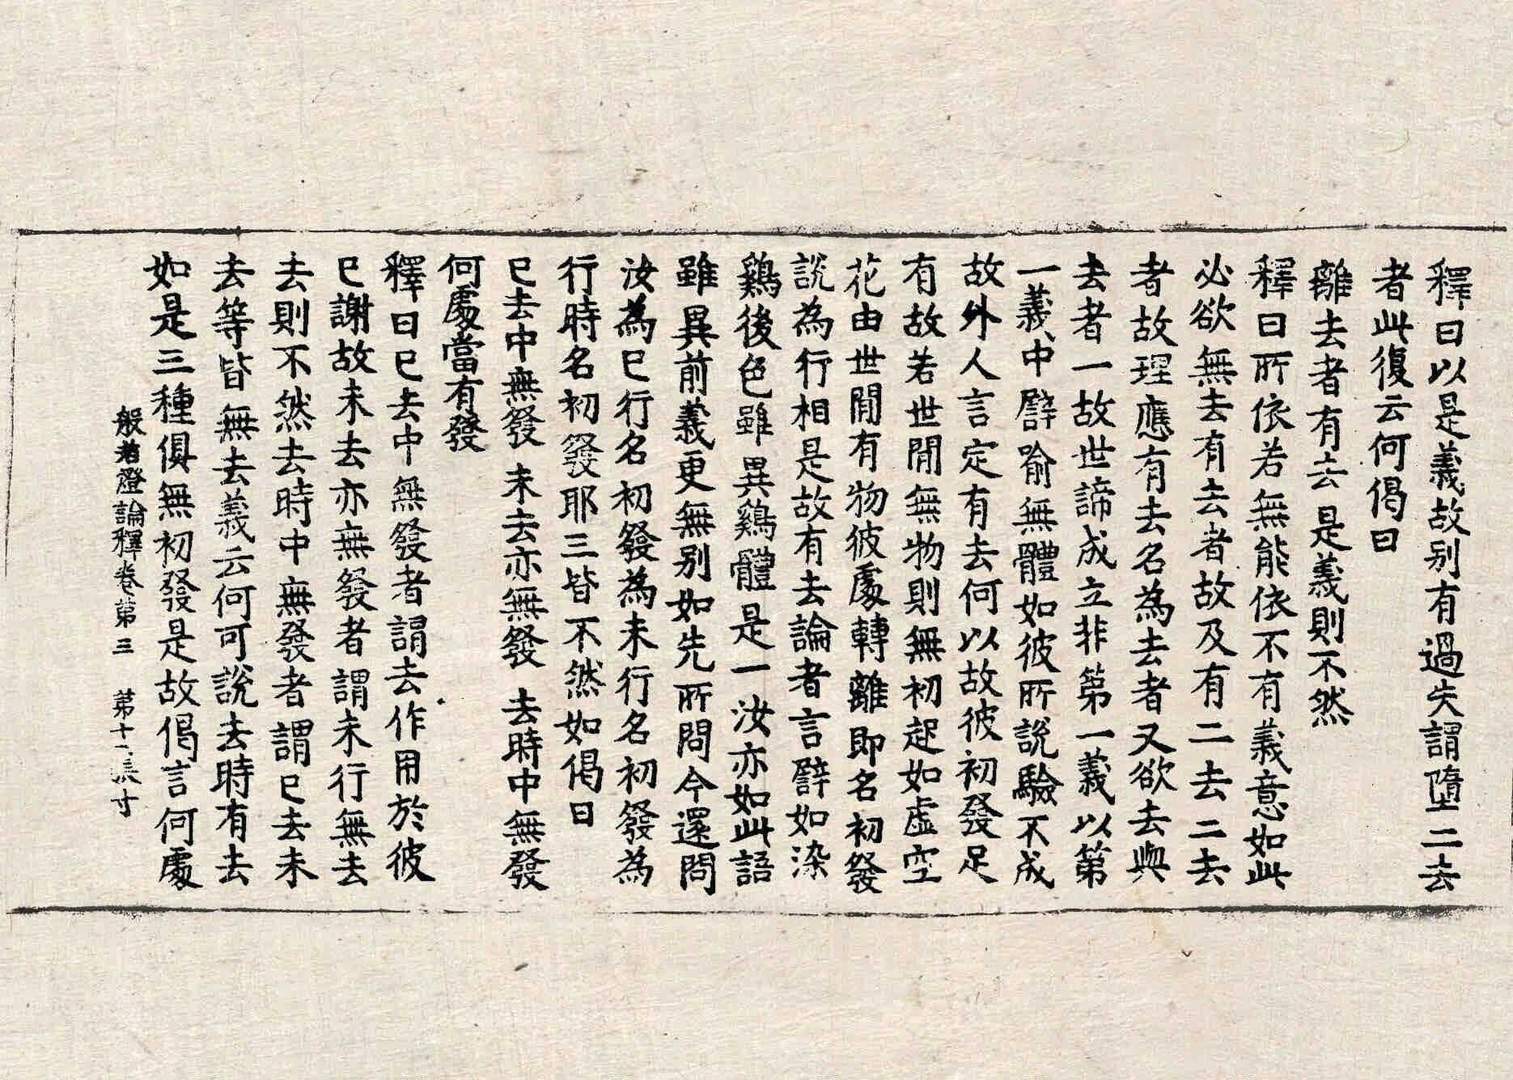 釋曰以是義故別有過失謂墮二去
者此復云何偈曰
離去者有去 是義則不然
釋曰所依若無能依不有義意如此
必欲無去有去者故及有二去二去
者故理應有去名為去者又欲去與
去者一故世諦成立非第一義以第
一義中譬喻無體如彼所說驗不成
故外人言定有去何以故彼初發足
有故若世間無物則無初起如虛空
花由世間有物彼處轉離即名初發
說為行相是故有去論者言譬如染
鷄後色雖異鷄體是一汝亦如此語
雖異前義更無別如先所問今還問
汝為已行名初發為未行名初發為
行時名初發耶三皆不然如偈曰
已去中無發 未去亦無發 去時中無發
何處當有發
釋曰已去中無發者謂去作用於彼
已謝故未去亦無發者謂未行無去
去則不然去時中無發者謂已去未
去等皆無去義云何可說去時有去
如是三種俱無初發是故偈言何處
般若燈論釋卷第三 第十 張 寸